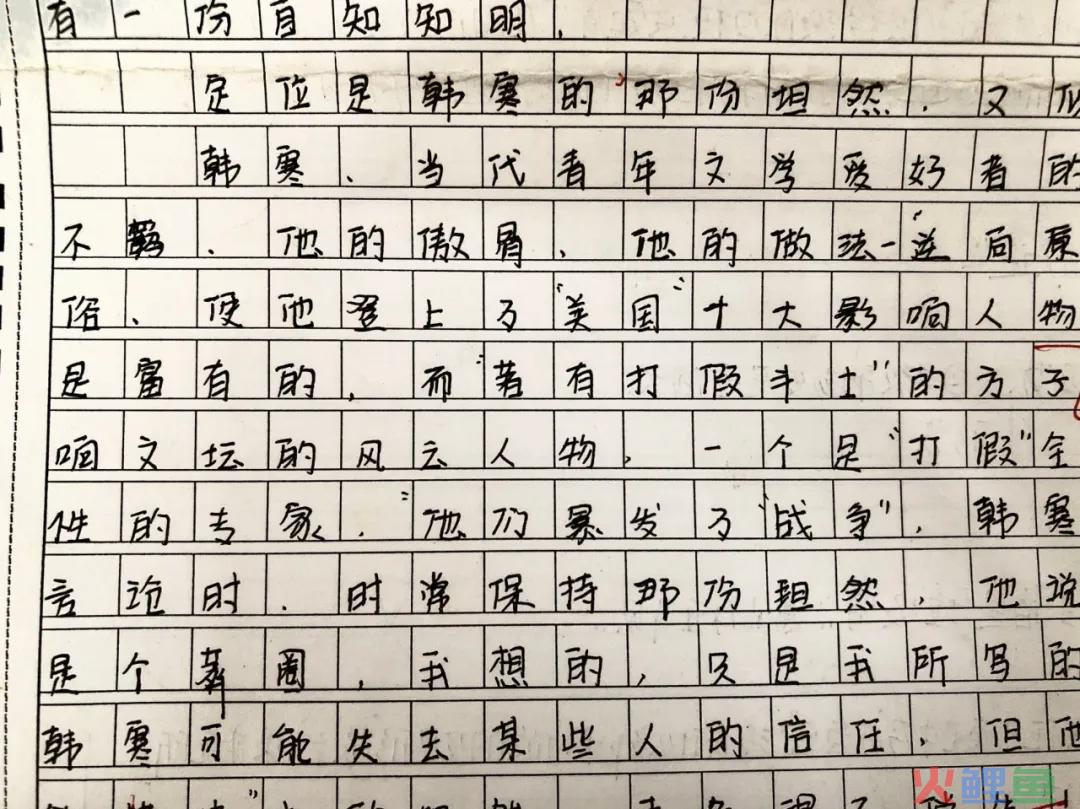 有一份自知知明，
定位是韩寒的那份坦然，又似
韩寒、当代青年文学爱好者的
不羁，他的傲骨，他的做法一逆向原
俗、使他登上了“美国”十大影响人物
是富有的，而“著有打假斗士”的方子
响文坛的风云人物，一个是“打假”全
性的专家，“他们暴发了“战争”，韩寒
言论时，时常保持那份坦然，他说
是个圈，我想的，只是我所写的
韩寒可能失去某些人的信任，但他
火鲤鱼